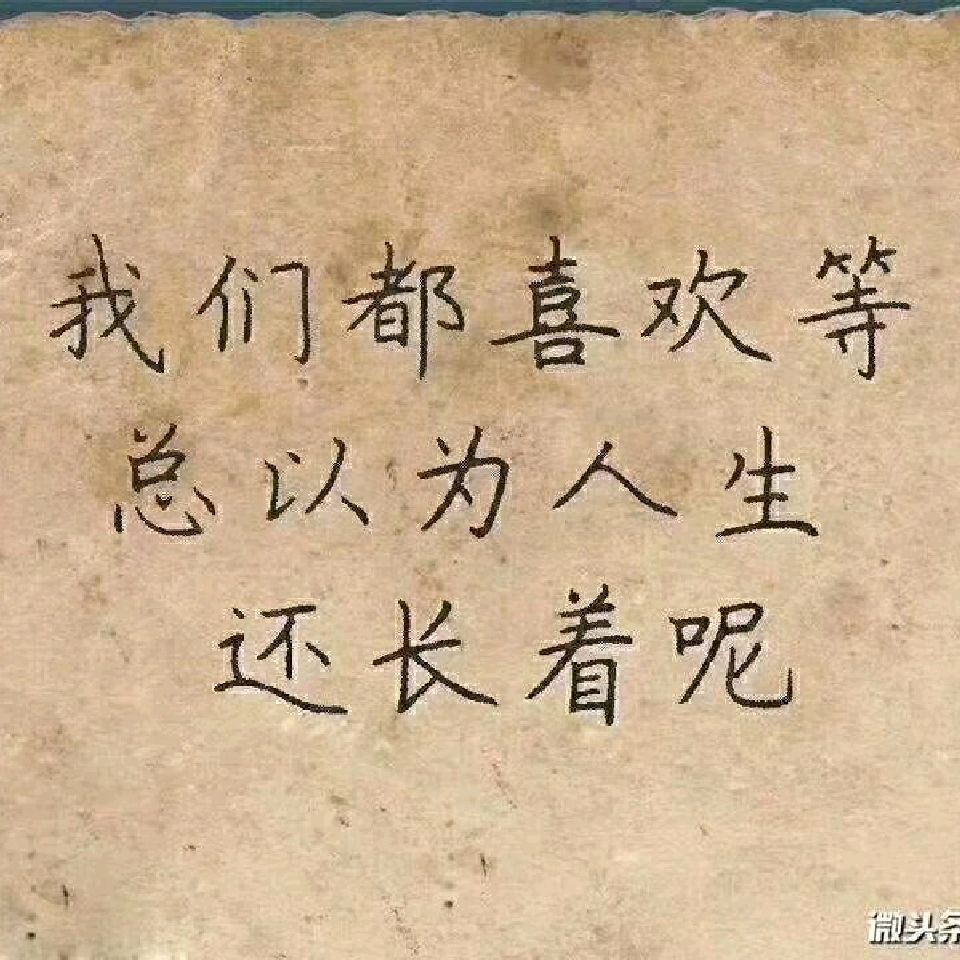 我们都喜欢等
总以为人生
还长着呢
微头条